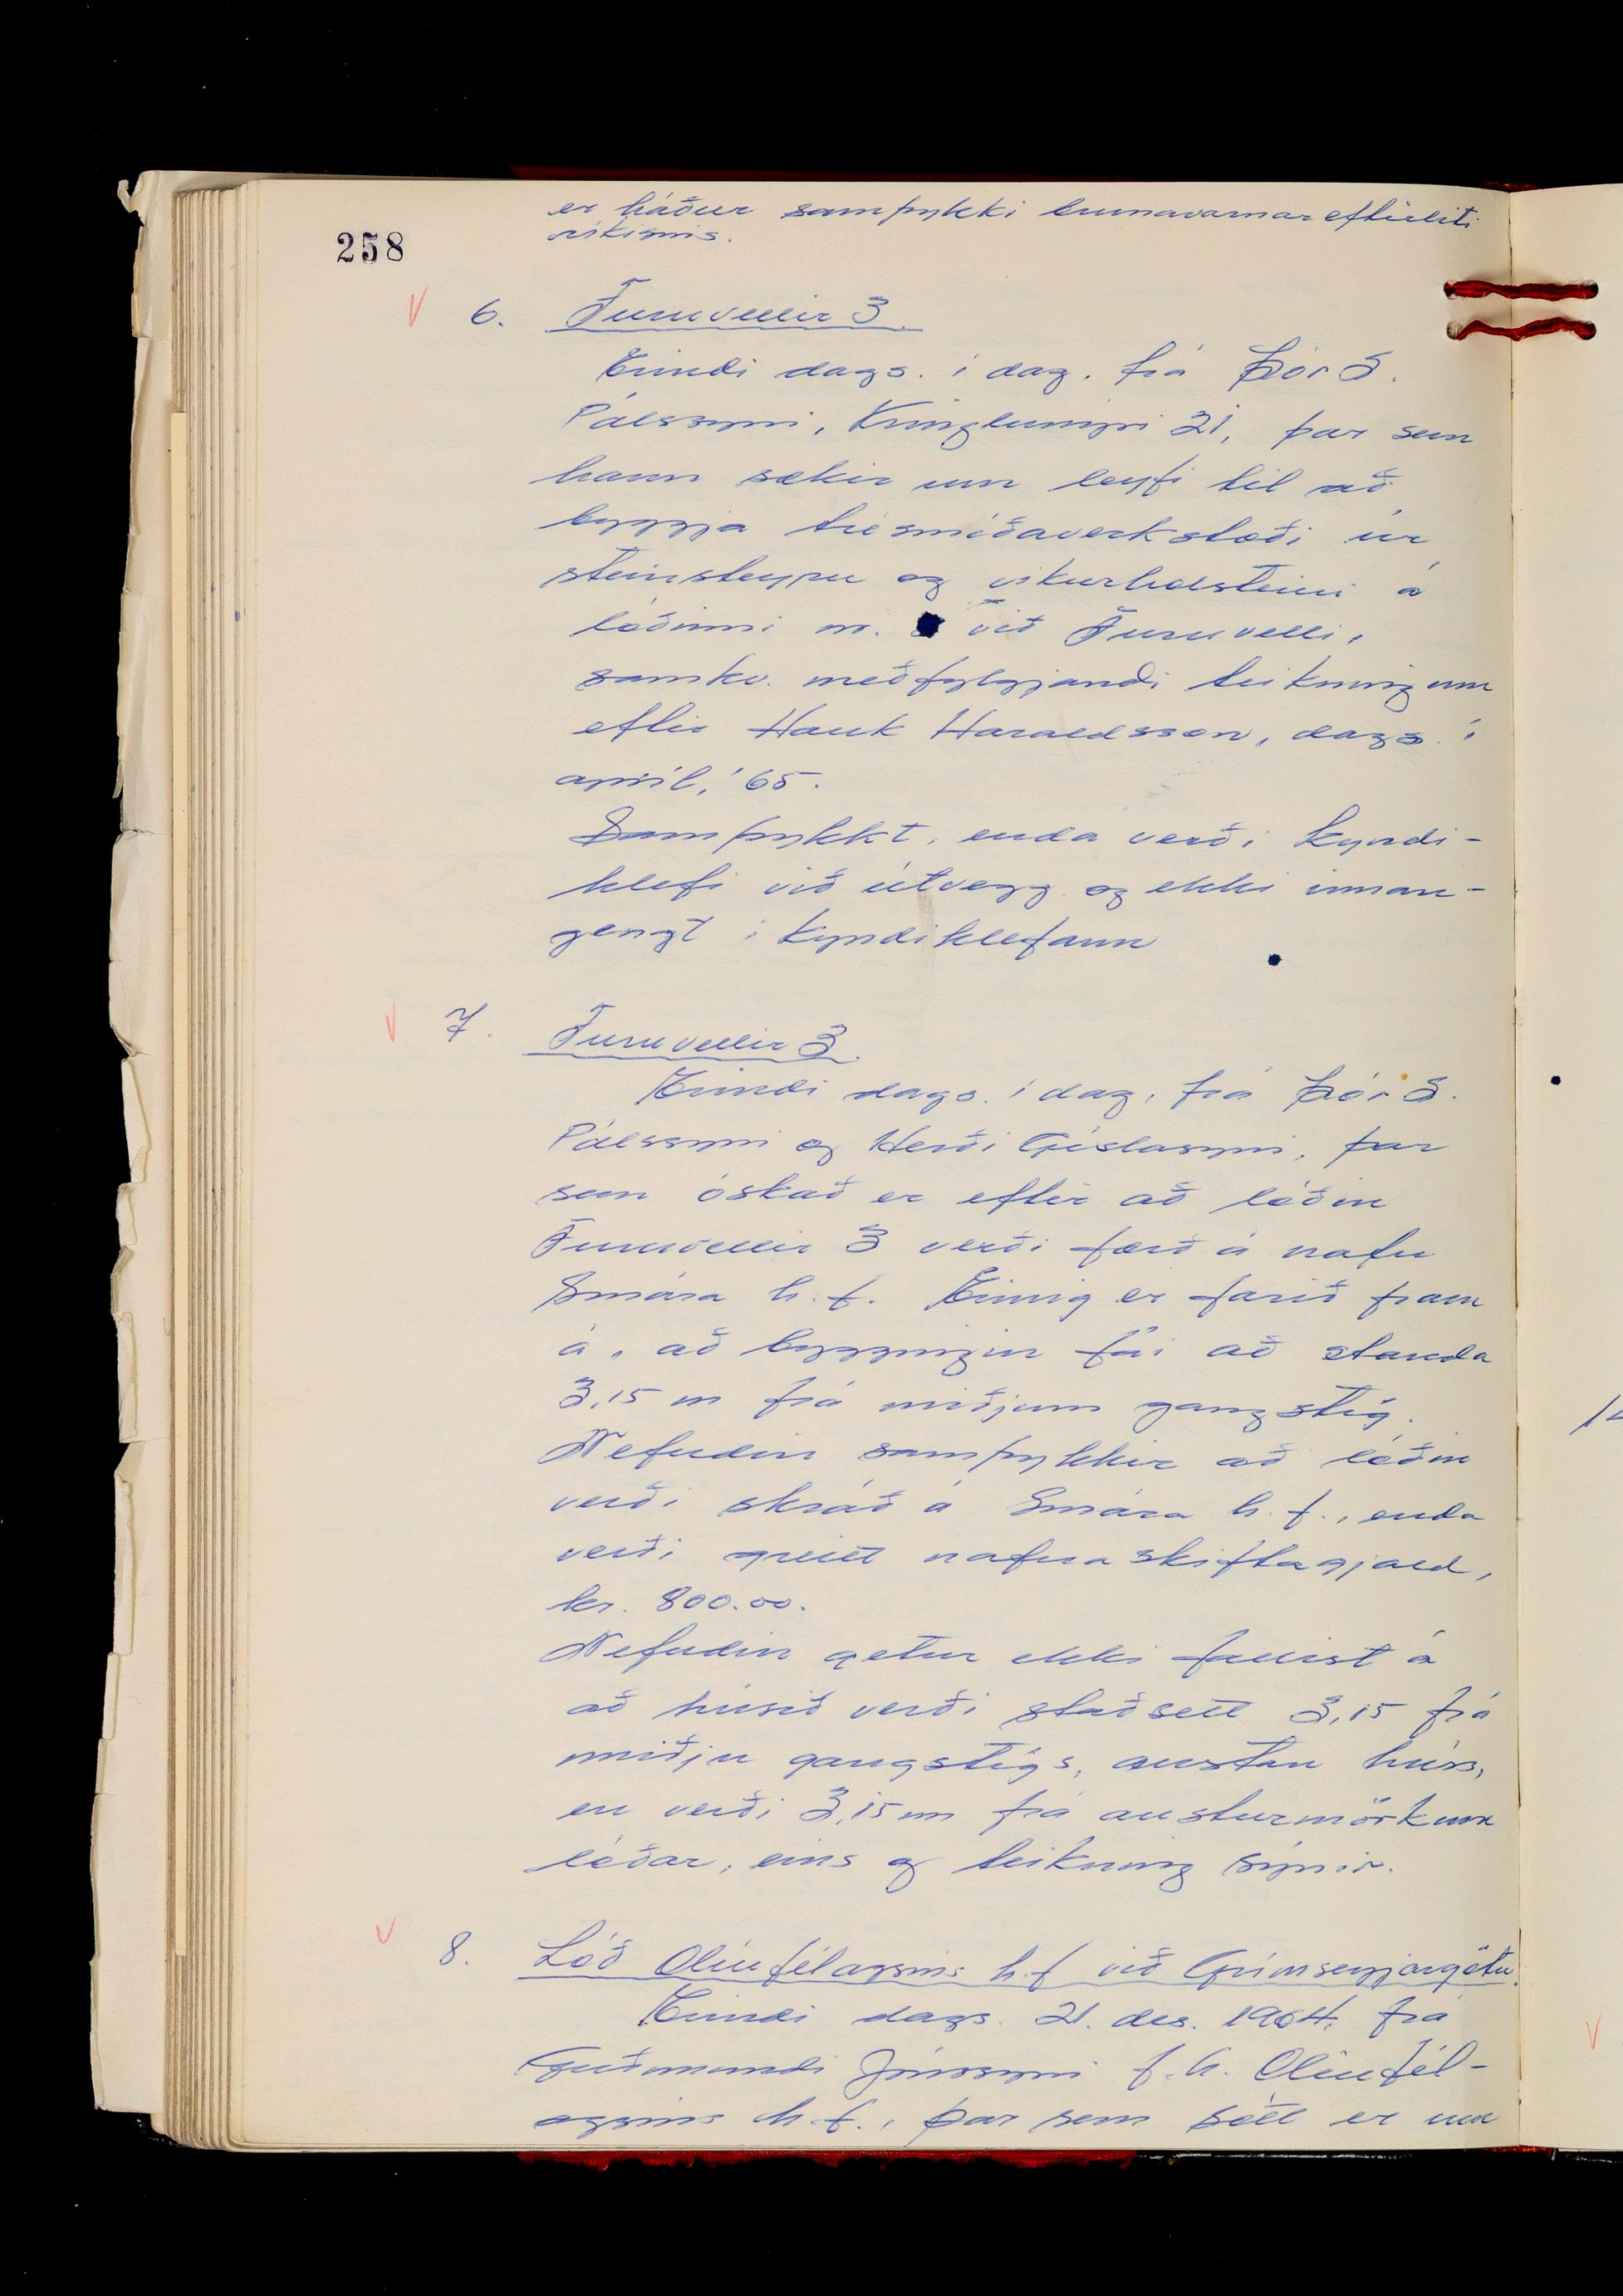 er háður samþykki brunavarnareftirliti
ríkisins.
258
V 6. Furuvellir 3.
Erindi dags. í dag. frá Þór S.
Pálssyni, Kringlumýri 21, þar sem
hann sækir um leyfi til að
byggja trésmíðaverkstæði úr
steinsteypu og vikurholsteini á
lóðinni nr. við Furuvelli,
samkv. meðfylgjandi teikningum
eftir Hauk Haraldsson, dags. í
apríl, '65.
Samþykkt, enda verði kyndi-
klefi við útvegg og ekki innan-
gengt í kyndiklefann
V 7. Furuvellir 3.
Erindi dags. í dag, frá Þór S.
Pálssyni og Herði Gíslasyni, þar
sem óskað er eftir að lóðin
Furuvellir 3 verði færð á nafn
Smára h.f. Einnig er farið fram
á, að byggingin fái að standa
3,15 m frá miðjum gangstíg.
Nefndin samþykkir að lóðin
verði skráð á Smára h.f., enda
verði greitt nafnaskiftagjald,
kr. 800.00.
Nefndin getur ekki fallist á
að húsið verði staðsett 3,15 frá
miðju gangstígs, austan húss,
en verði 3,15 m frá austurmörkum
lóðar, eins og teikning sýnir.
V 8. Lóð Olíufélagsins h.f við Grímseyjargötu.
Erindi dags. 21. des. 1964, frá
Guðmundi Jónssyni f.h. Olíufél-
agsins h.f., þar sem sótt er um
V